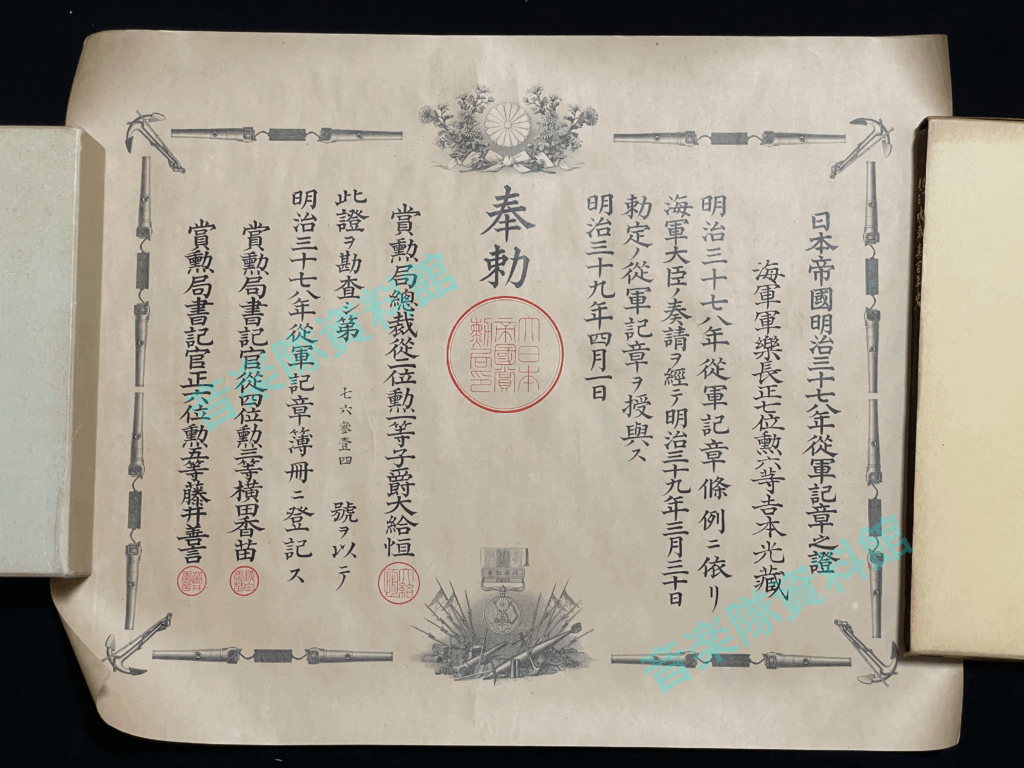 日本帝國明治三十七八年從軍記章之證
海軍軍樂長正七位勲六等吉本光藏
明治三十七八年從軍記章條例ニ依リ
海軍大臣ノ奏請ヲ經テ明治三十九年三月三十日
勅定ノ從軍記章ヲ授與ス
明治三十九年四月一日
奉勅
大日本帝國賞勲局印
賞勲局總裁從二位勲一等子爵大給恒
此證ヲ勘査シ第七六參壹四號ヲ以テ
明治三十七八年從軍記章簿冊ニ登記ス
賞勲局書記官從四位勲三等橫田香苗
賞勲局書記官正六位勲五等藤井善言
音楽隊資料館
音楽隊資料館